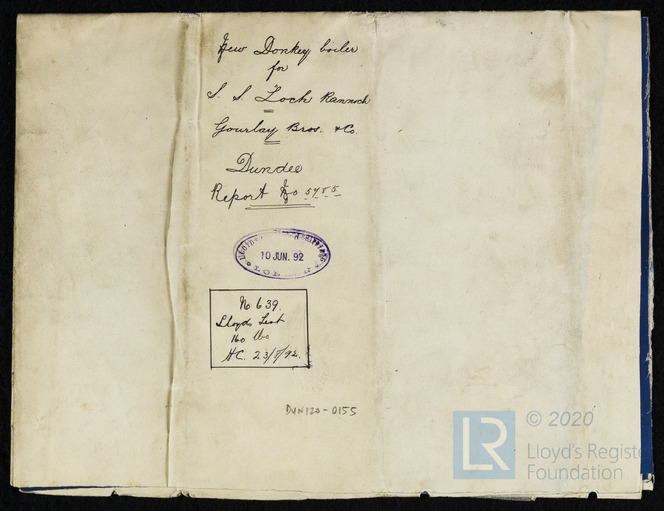 New Donkey boiler
for
S. S. Loch Rannoch
Gourlay Bros. & Co.
Dundee
Report No 5785
LLOYD'S SHIPPING
10 JUN. 92
No 639.
Lloyds Test
160 lbs
HC. 23/5/92.
DUN120-0155
LR
© 2020
Lloyd's Registe
Foundation